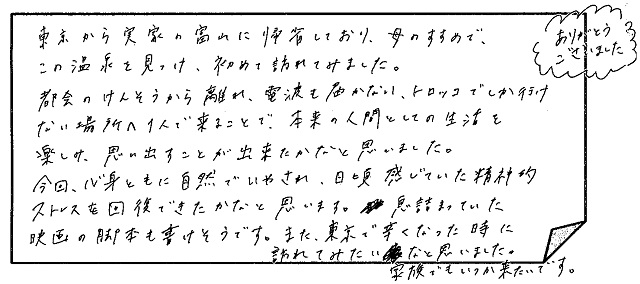 東京から実家の富山に帰省しており、母のすすめで、
この温泉を見つけ、初めて訪れてみました。
都会のけんそうから離れ、電波も届かない、トロッコでしか行け
ない場所へ1人で来ることで、本来の人間としての生活を
楽しみ、思い出すことが出来たかなと思いました。
今回、心身ともに自然でいやされ、日頃感じていた精神的
ストレスを回復できたかなと思います。息詰まっていた
映画の脚本も書けそうです。また、東京で辛くなった時に
訪れてみたいなと思いました。
家族でもいつか来たいです。
ありがとう
ございました